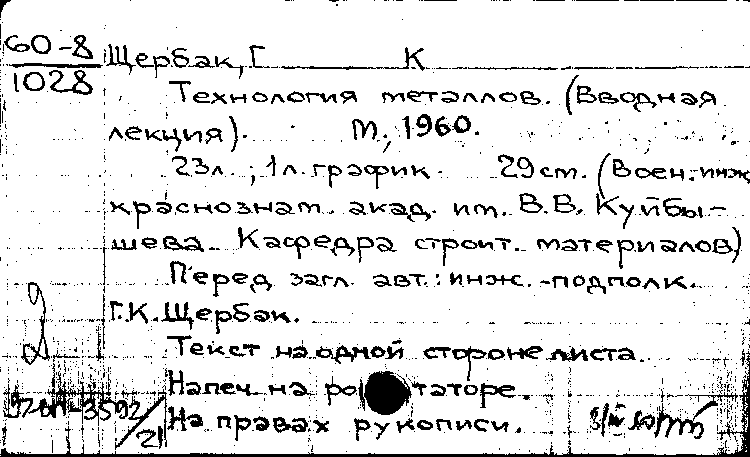 60-8
1028
Щербак, Г К
Технология металлов. (Вводная
лекция). М., 1960.
23л., 1л. график. 29см. (Воен.-инж
краснознам. акад. им. В.В. Куйбы-
шева. Кафедра строит. материалов)
Перед загл. авт.: инж.-подполк.
Г.К. Щербак.
Текст на одной стороне листа.
Напеч. на ро таторе.
На правах рукописи.
2
3592/21